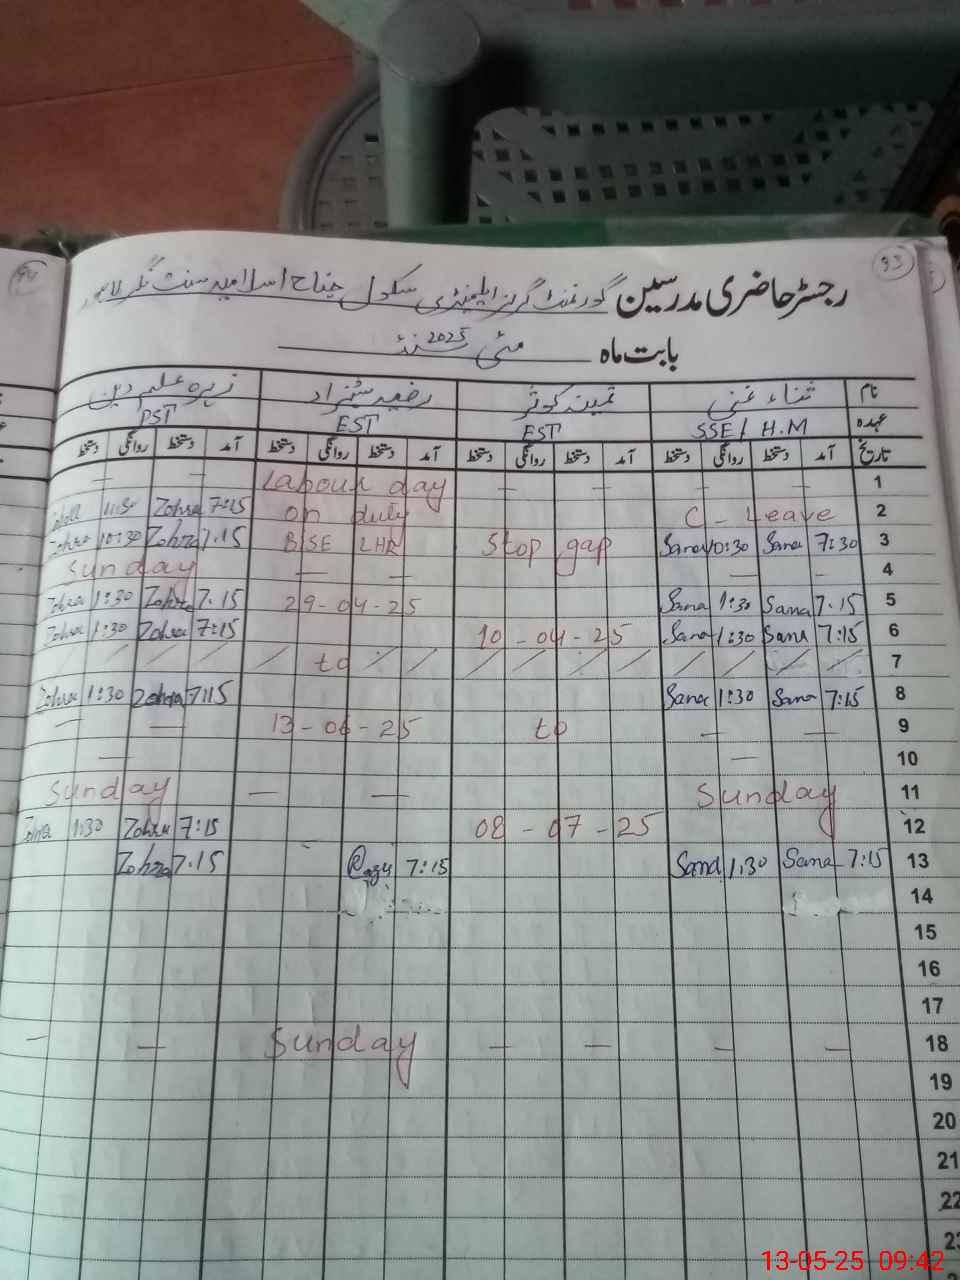 93
رجسٹر حاضری مدرسین گورنمنٹ گرلز ایلیمنٹری سکول جناح اسلامیہ سنت نگر لاہور
بابت ماہ مئی سنہ 2025
نام ثناء غنی ثمینہ کوثر رضیہ شہزاد زہرہ علم دین
عہدہ SSE/ H.M EST EST PST
تاریخ آمد دستخط روانگی دستخط آمد دستخط روانگی دستخط آمد دستخط روانگی دستخط آمد دستخط روانگی دستخط
— — Labour day — — — — 1
Zohra 7:15 on duty C - Leave 2
Zohra 10:30 Zohra 7.15 BISE LHR Stop gap Sana 10:30 Sana 7:30 3
Sunday — — — - 4
Zohra 1:30 Zohra 7.15 29-04-25 Sana 1:30 Sana 7.15 5
Zohra 1:30 Zohra 7:15 10-04-25 Sana 1:30 Sana 7:15 6
/ / / / / to / / / / / / / / / / 7
Zohra 1:30 Zohra 7:15 Sana 1:30 Sana 7:15 8
— — 13-06-25 to — — 9
— — 10
Sunday — — Sunday 11
Zohra 1:30 Zohra 7:15 08-07-25 12
Zohra 7.15 7:15 Sana 1:30 Sana 7:15 13
14
15
16
17
- — Sunday — — — — 18
19
20
21
22
13-05-25 09:42